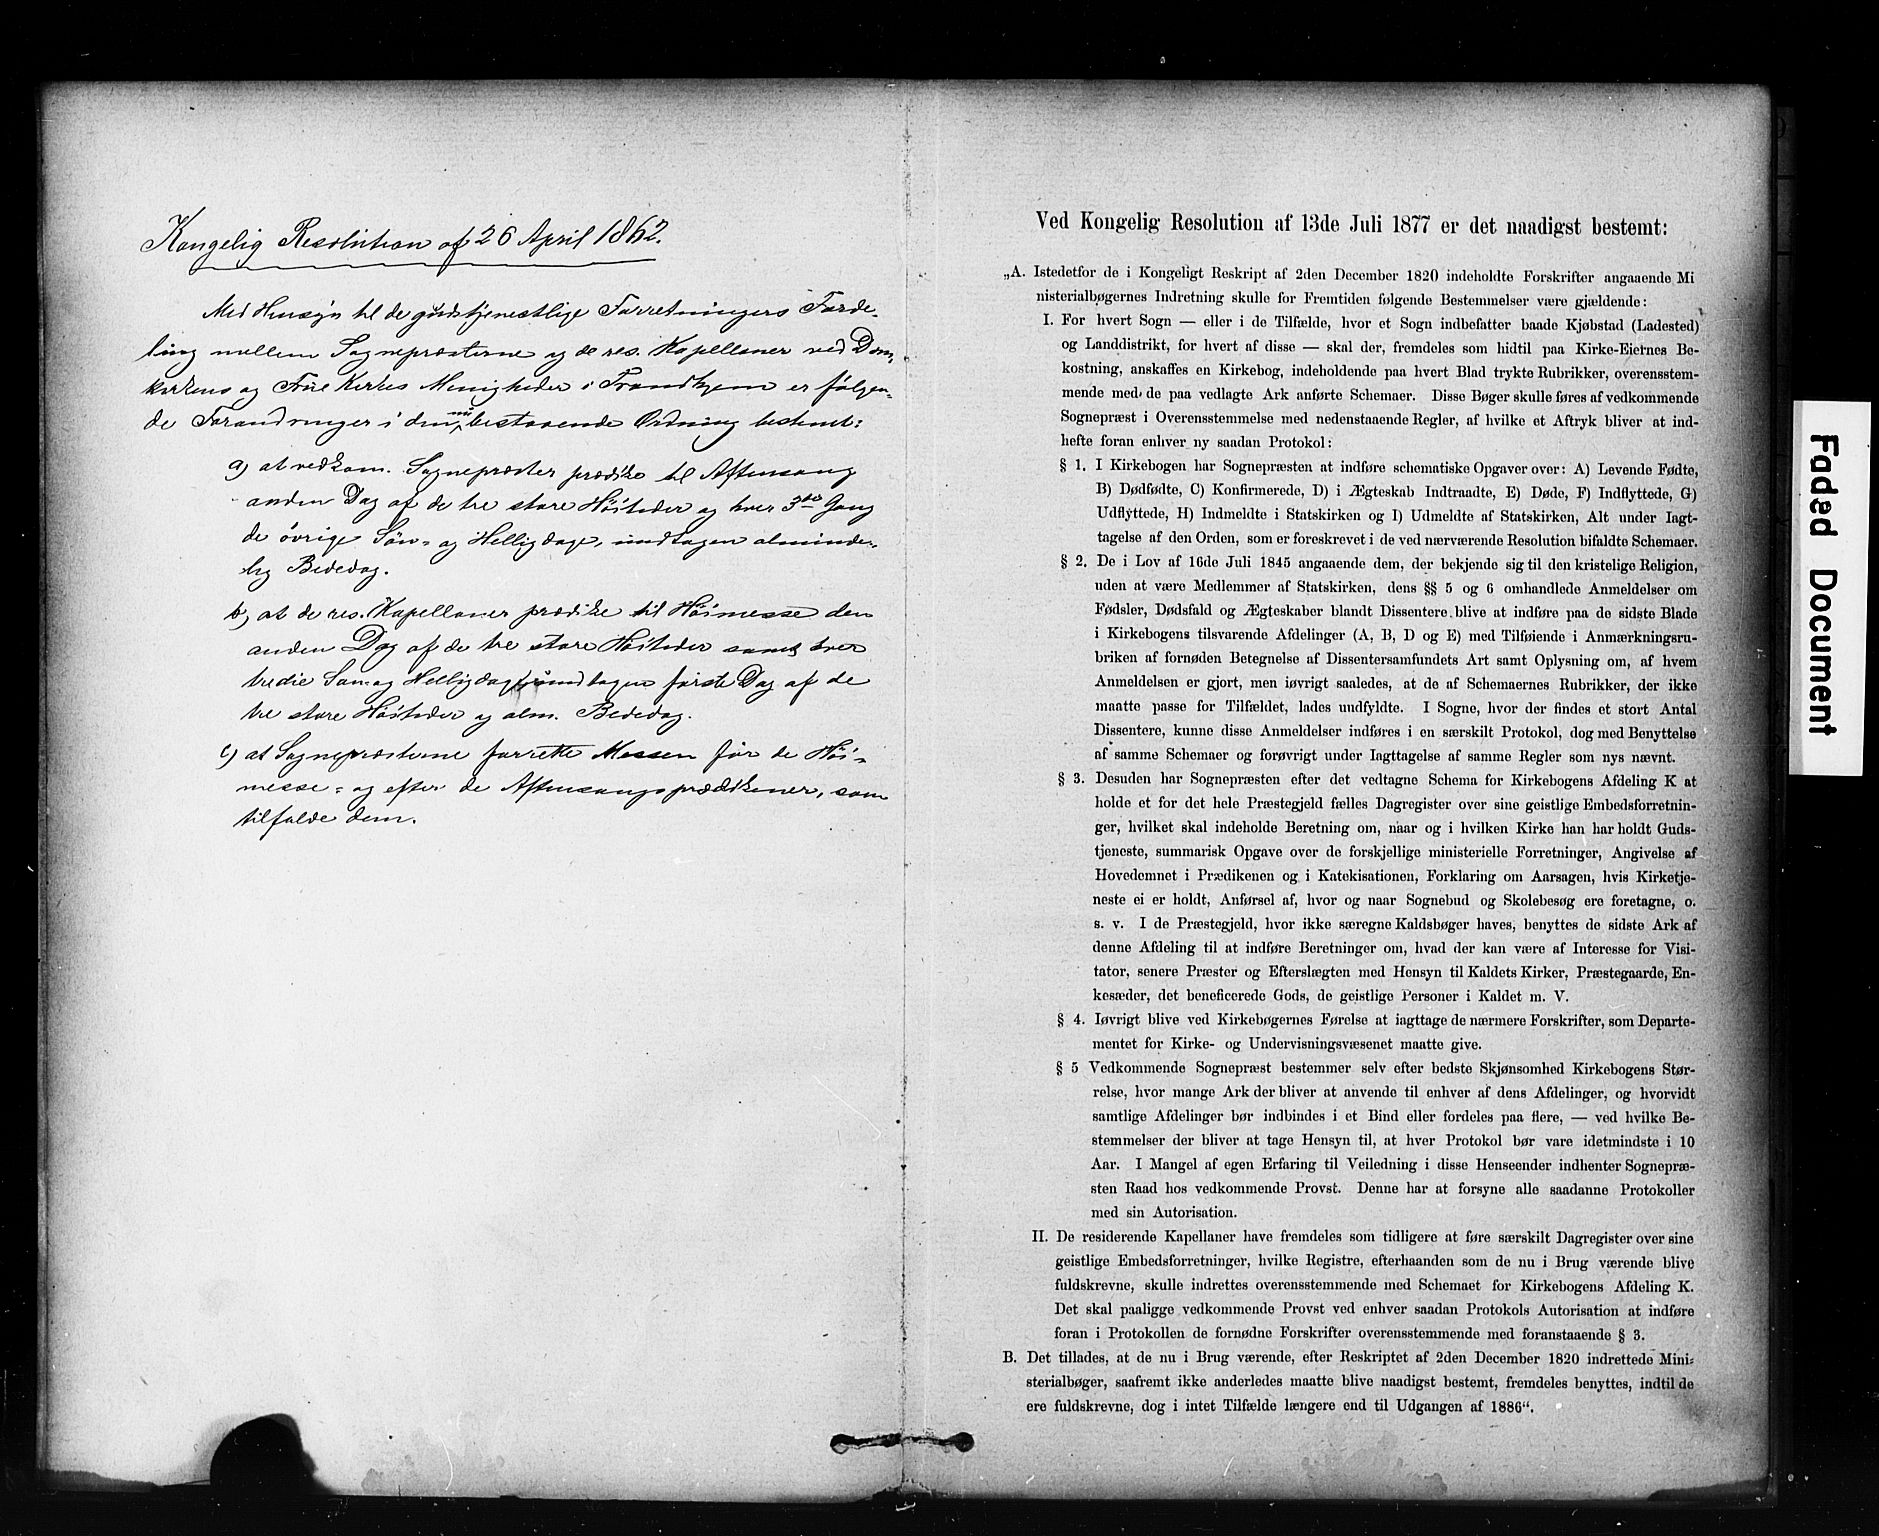 Kongelig Resolution af 26 April 1862.
Med Hensyn til de gudstjenestlige Forretningers Forde-
ling mellem Sognepræsterne og de res. Kapellaner ved Dom-
kirkens og Frue Kirkes Menigheder i Trondhjem er følgen-
de Forandringer i den nu bestaaende Ordning bestemt:
a) at vedkom. Sognepræster prædike til Aftensang
anden Dag af de tre store Høitider og hver 3die Gang
de øvrige Søn- og Helligdage, undtagen alminde-
lig Bededag.
b) at de res. Kapellaner prædike til Høimesse den
anden Dag af de tre store Høitider samt hver
tredie Søn og Helligdag undtagen første Dag af de
tre store Høitider og alm. Bededag.
c) at Sognepræsterne forrette Messen før de Høi-
messe- og efter de Aftensangsprædikener, som
tilfalde dem.
Ved Kongelig Resolution af 13de Juli 1877 er det naadigst bestemt:
„A. Istedetfor de i Kongeligt Reskript af 2den December 1820 indeholdte Forskrifter angaaende Mi
nisterialbøgernes Indretning skulle for Fremtiden følgende Bestemmelser være gjældende:
I. For hvert Sogn — eller i de Tilfælde, hvor et Sogn indbefatter baade Kjøbstad (Ladested)
og Landdistrikt, for hvert af disse — skal der, fremdeles som hidtil paa Kirke-Eiernes Be-
kostning, anskaffes en Kirkebog, indeholdende paa hvert Blad trykte Rubrikker, overensstem-
mende med de paa vedlagte Ark anførte Schemaer. Disse Bøger skulle føres af vedkommende
Sognepræst i Overensstemmelse med nedenstaaende Regler, af hvilke et Aftryk bliver at ind-
hefte foran enhver ny saadan Protokol:
§ 1. I Kirkebogen har Sognepræsten at indføre schematiske Opgaver over: A) Levende Fødte,
B) Dødfødte, C) Konfirmerede, D) i Ægteskab Indtraadte, E) Døde, F) Indflyttede, G)
Udflyttede, H) Indmeldte i Statskirken og I) Udmeldte af Statskirken, Alt under Iagt-
tagelse af den Orden, som er foreskrevet i de ved nærværende Resolution bifaldte Schemaer.
§ 2. De i Lov af 16de Juli 1845 angaaende dem, der bekjende sig til den kristelige Religion,
uden at være Medlemmer af Statskirken, dens §§ 5 og 6 omhandlede Anmeldelser om
Fødsler, Dødsfald og Ægteskaber blandt Dissentere blive at indføre paa de sidste Blade
i Kirkebogens tilsvarende Afdelinger (A, B, D og E) med Tilføiende i Anmærkningsru-
briken af fornøden Betegnelse af Dissentersamfundets Art samt Oplysning om, af hvem
Anmeldelsen er gjort, men iøvrigt saaledes, at de af Schemaernes Rubrikker, der ikke
maatte passe for Tilfældet, lades undfyldte. I Sogne, hvor der findes et stort Antal
Dissentere, kunne disse Anmeldelser indføres i en særskilt Protokol, dog med Benyttelse
af samme Schemaer og forøvrigt under Iagttagelse af samme Regler som nys nævnt.
§ 3. Desuden har Sognepræsten efter det vedtagne Schema for Kirkebogens Afdeling K at
holde et for det hele Præstegjeld fælles Dagregister over sine geistlige Embedsforretnin-
ger, hvilket skal indeholde Beretning om, naar og i hvilken Kirke han har holdt Guds-
tjeneste, summarisk Opgave over de forskjellige ministerielle Forretninger, Angivelse af
Hovedemnet i Prædikenen og i Katekisationen, Forklaring om Aarsagen, hvis Kirketje-
neste ei er holdt, Anførsel af, hvor og naar Sognebud og Skolebesøg ere foretagne, o.
s. v. I de Præstegjeld, hvor ikke særegne Kaldsbøger haves, benyttes de sidste Ark af
denne Afdeling til at indføre Beretninger om, hvad der kan være af Interesse for Visi-
tator, senere Præster og Efterslægten med Hensyn til Kaldets Kirker, Præstegaarde, En-
kesæder, det beneficerede Gods, de geistlige Personer i Kaldet m. V.
§ 4. Iøvrigt blive ved Kirkebøgernes Førelse at iagttage de nærmere Forskrifter, som Departe-
mentet for Kirke- og Undervisningsvæsenet maatte give.
§ 5 Vedkommende Sognepræst bestemmer selv efter bedste Skjønsomhed Kirkebogens Stør-
relse, hvor mange Ark der bliver at anvende til enhver af dens Afdelinger, og hvorvidt
samtlige Afdelinger bør indbindes i et Bind eller fordeles paa flere, — ved hvilke Be-
stemmelser der bliver at tage Hensyn til, at hver Protokol bør vare idetmindste i 10
Aar. I Mangel af egen Erfaring til Veiledning i disse Henseender indhenter Sognepræ-
sten Raad hos vedkommende Provst. Denne har at forsyne alle saadanne Protokoller
med sin Autorisation.
II. De residerende Kapellaner have fremdeles som tidligere at føre særskilt Dagregister over sine
geistlige Embedsforretninger, hvilke Registre, efterhaanden som de nu i Brug værende blive
fuldskrevne, skulle indrettes overensstemmende med Schemaet for Kirkebogens Afdeling K.
Det skal paaligge vedkommende Provst ved enhver saadan Protokols Autorisation at indføre
foran i Protokollen de fornødne Forskrifter overensstemmende med foranstaaende § 3.
B. Det tillades, at de nu i Brug værende, efter Reskriptet af 2den December 1820 indrettede Mini-
sterialbøger, saafremt ikke anderledes maatte blive naadigst bestemt, fremdeles benyttes, indtil de
ere fuldskrevne, dog i intet Tilfælde længere end til Udgangen af 1886“.
Faded Document